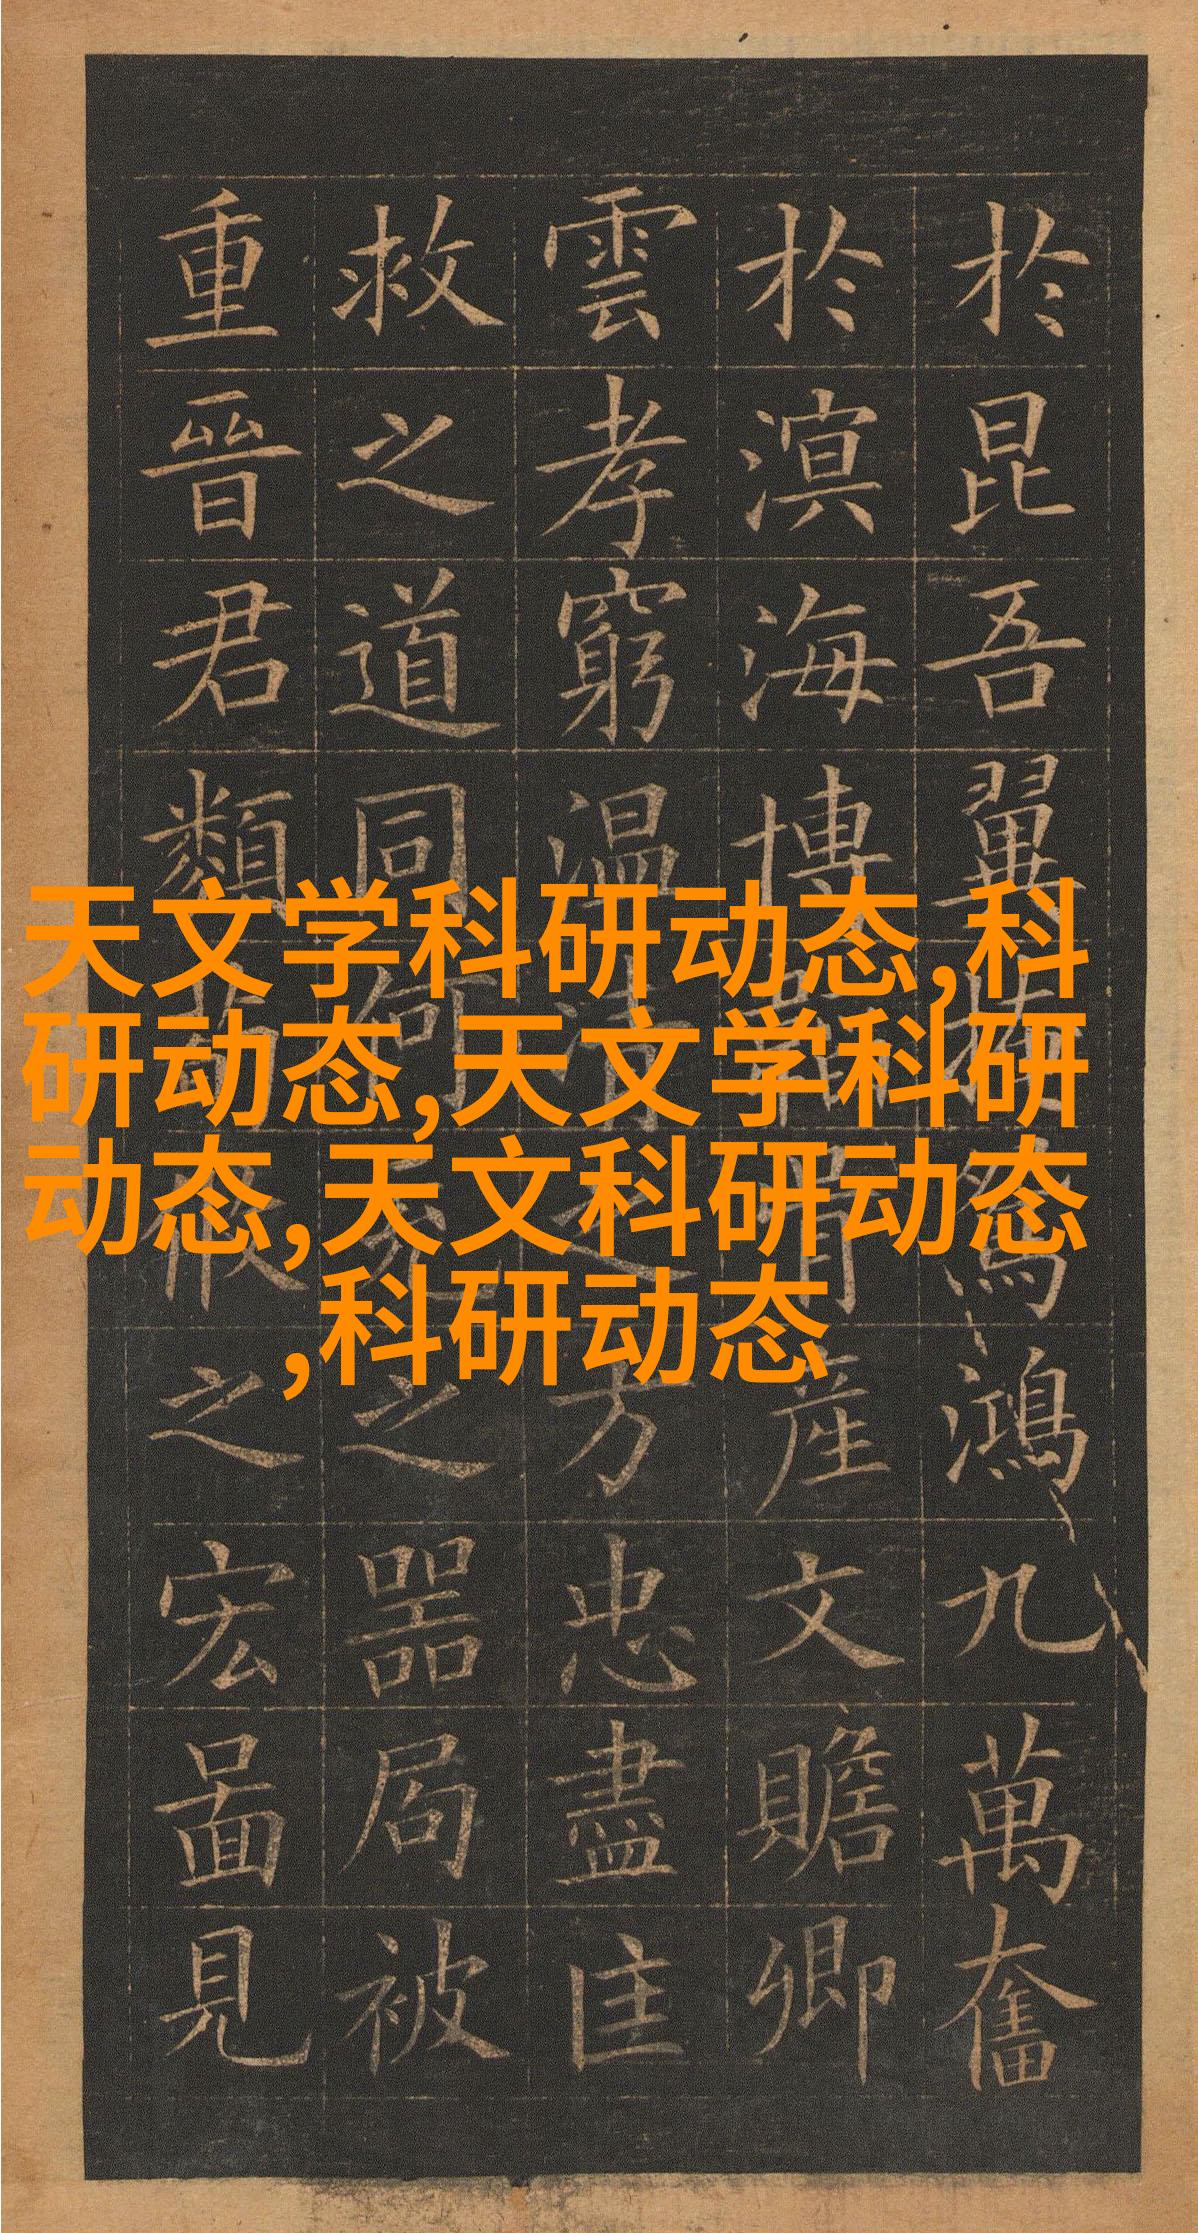 天文学科研动态,科
研动态,天文学科研
动态,天文科研动态
,科研动态
於昆吾翼鴻九萬奮
於溟海博胄產文贍卿
雲孝窮温清之方忠盡匡
救之道同何充之器局被
重晉君類荀攸之宏啚見